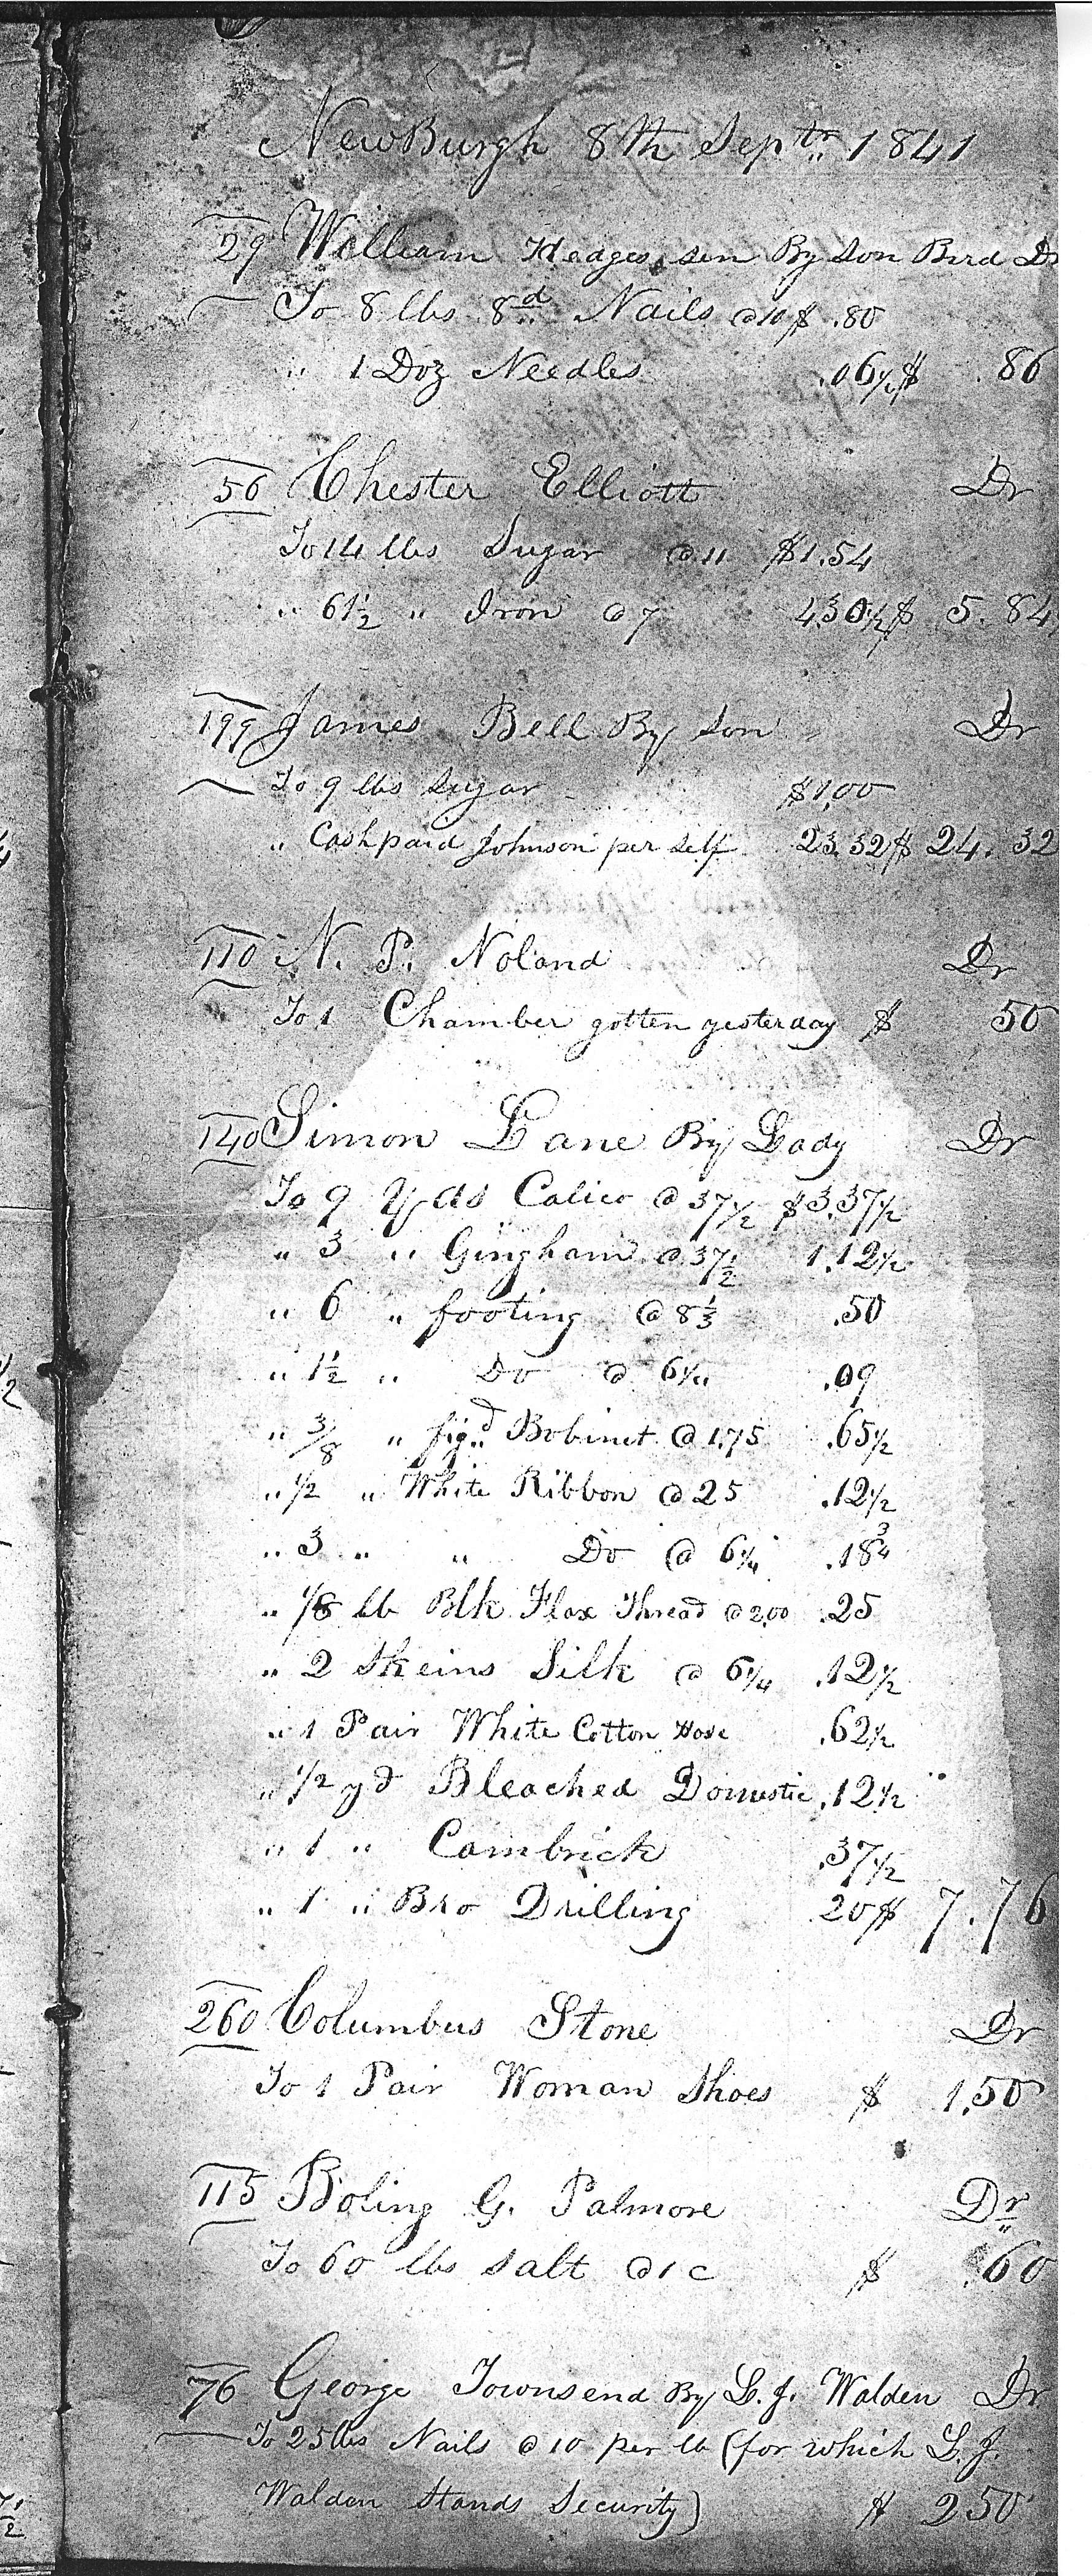 NewBurgh 8th Septr 1841
29 William Hedges, sen By Son Bird Dr
To 8 lbs 8d Nails @ 10 $ .80
" 1 Doz Needles .06¼ $ .86
56 Chester Elliott Dr
To 14 lbs Sugar @ 11 $1.54
" 61½ " Iron @ 7 4.30½ $ 5.84
199 James Bell By Son Dr
To 9 lbs Sugar $1,00
" Cash paid Johnson per self 23.32 $ 24.32
110 N. P. Noland Dr
To 1 Chamber gotten yesterday $ 50
140 Simon Lane By Lady Dr
To 9 Yds Calico @ 37½ $3.37½
" 3 " Gingham @ 37½ 1.12½
" 6 " footing @ 8⅓ .50
" 1½ " Do @ 6¼ .09
" 3/8 " figd Bobinet @ 1.75 .65½
" ½ " White Ribbon @ 25 .12½
" 3 " " Do @ 6¼ .18¾
" 1/8 lb Blk Flax Thread @ 2.00 .25
" 2 Skeins Silk @ 6¼ .12½
" 1 Pair White Cotton Hose .62½
" ½ yd Bleached Domestic .12½
" 1 " Cambrick .37½
" 1 " Bro Drilling 20 $ 7.76
260 Columbus Stone Dr
To 1 Pair Woman Shoes $ 1.50
115 Boling G. Palmore Dr
To 60 lbs Salt @ 1 c $ .60
76 George Townsend By L. J. Walden Dr
To 25 lbs Nails @ 10 per lb (for which L. J.
Walden Stands Security) $ 250